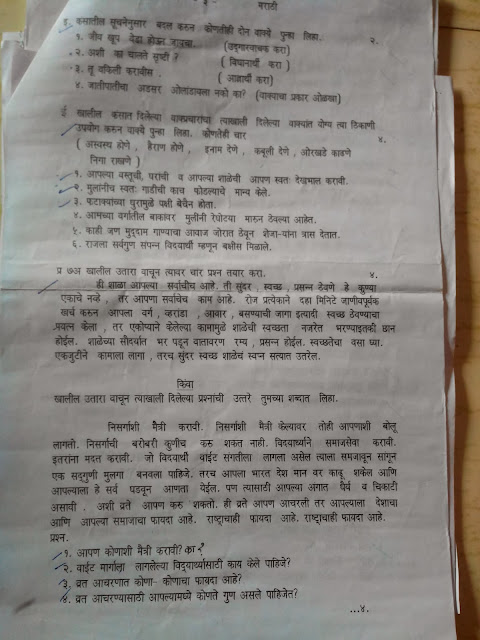 मराठी
इ. कंसातील सूचनेनुसार बदल करुन कोणतीही दोन वाक्ये पुन्हा लिहा. २.
१. जीव खूप वेडा होऊन जायचा. (उद्गारवाचक करा)
२. अशी का चालते सृष्टी ? ( विधानार्थी करा )
३. तू वकिली करावीस . ( आज्ञार्थी करा )
४. जातीपातीचा अडसर ओलांडायला नको का? (वाक्याचा प्रकार ओळखा)
ई. खालील कंसात दिलेल्या वाक्प्रचारांचा त्याखाली दिलेल्या वाक्यांत योग्य त्या ठिकाणी
उपयोग करुन वाक्ये पुन्हा लिहा. कोणतेही चार ४.
( अस्वस्थ होणे , हैराण होणे , इनाम देणे , कबूली देणे , ओरखडे काढणे
निगा राखणे )
१. आपल्या वस्तूची, घरांची व आपल्या शाळेची आपण स्वतः देखभाल करावी.
२. मुलांनीच स्वतः गाडीची काच फोडल्याचे मान्य केले.
३. फटाक्यांच्या धुरामुळे पक्षी बेचैन होता.
४. आमच्या वर्गातील बाकांवर मुलींनी रेघोट्या मारुन ठेवल्या आहेत.
५. काही जण मुद्दाम गाण्याचा आवाज जोरात ठेवून शेजा-यांना त्रास देतात.
६. राजला सर्वगुण संपन्न विदयार्थी म्हणून बक्षीस मिळाले.
प्र ७अ खालील उतारा वाचून त्यावर चार प्रश्न तयार करा. ४.
ही शाळा आपल्या सर्वांचीच आहे. ती सुंदर , स्वच्छ , प्रसन्न ठेवणे हे कुण्या
एकाचे नव्हे , तर आपणा सर्वांचेच काम आहे. रोज प्रत्येकाने दहा मिनिटे जाणीवपूर्वक
खर्च करुन आपला वर्ग , व्हरांडा , आवार , बसण्याची जागा इत्यादी स्वच्छ ठेवण्याचा
प्रयत्न केला , तर एकोप्याने केलेल्या कामामुळे शाळेची स्वच्छता नजरेत भरण्याइतकी छान
होईल. शाळेच्या सौंदर्यात भर पडून वातावरण रम्य , प्रसन्न होईल. स्वच्छतेचा वसा घ्या.
एकजुटीने कामाला लागा , तरच सुंदर स्वच्छ शाळेचं स्वप्न सत्यात उतरेल.
किंवा
खालील उतारा वाचून त्याखाली दिलेल्या प्रश्नांची उत्तरे तुमच्या शब्दात लिहा.
निसर्गाशी मैत्री करावी. निसर्गाशी मैत्री केल्यावर तोही आपणाशी बोलू
लागतो. निसर्गाची बरोबरी कुणीच करु शकत नाही. विदयार्थ्याने समाजसेवा करावी.
इतरांना मदत करावी. जो विदयार्थी वाईट संगतीला लागला असेल त्याला समजावून सांगून
एक सद्गुणी मुलगा बनवला पाहिजे. तरच आपला भारत देश मान वर काढू शकेल आणि
आपल्याला हे सर्व घडवून आणता येईल. पण त्यासाठी आपल्या अंगात धैर्य व चिकाटी
असावी . अशी व्रते आपण करु शकतो. ही व्रते आपण आचरली तर आपल्याला देशाचा
आणि आपल्या समाजाचा फायदा आहे. राष्ट्राचाही फायदा आहे. राष्ट्राचाही फायदा आहे.
प्रश्न.
१. आपण कोणाशी मैत्री करावी? का?
२. वाईट मार्गाला लागलेल्या विद्यार्थ्यासाठी काय केले पाहिजे?
३. व्रत आचरणात कोणा- कोणाचा फायदा आहे?
४. व्रत आचरण्यासाठी आपल्यामध्ये कोणते गुण असले पाहिजेत?
...४.